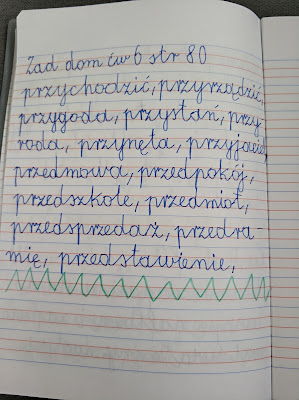 Zad dom ćw 6 str 80
przychodzić, przyrządzić,
przygoda, przystań, przy-
roda, przynęta, przyjaciel,
przedmowa, przedpokój,
przedszkole, przedmiot,
przedsprzedaż, przedra-
mię, przedstawienie,